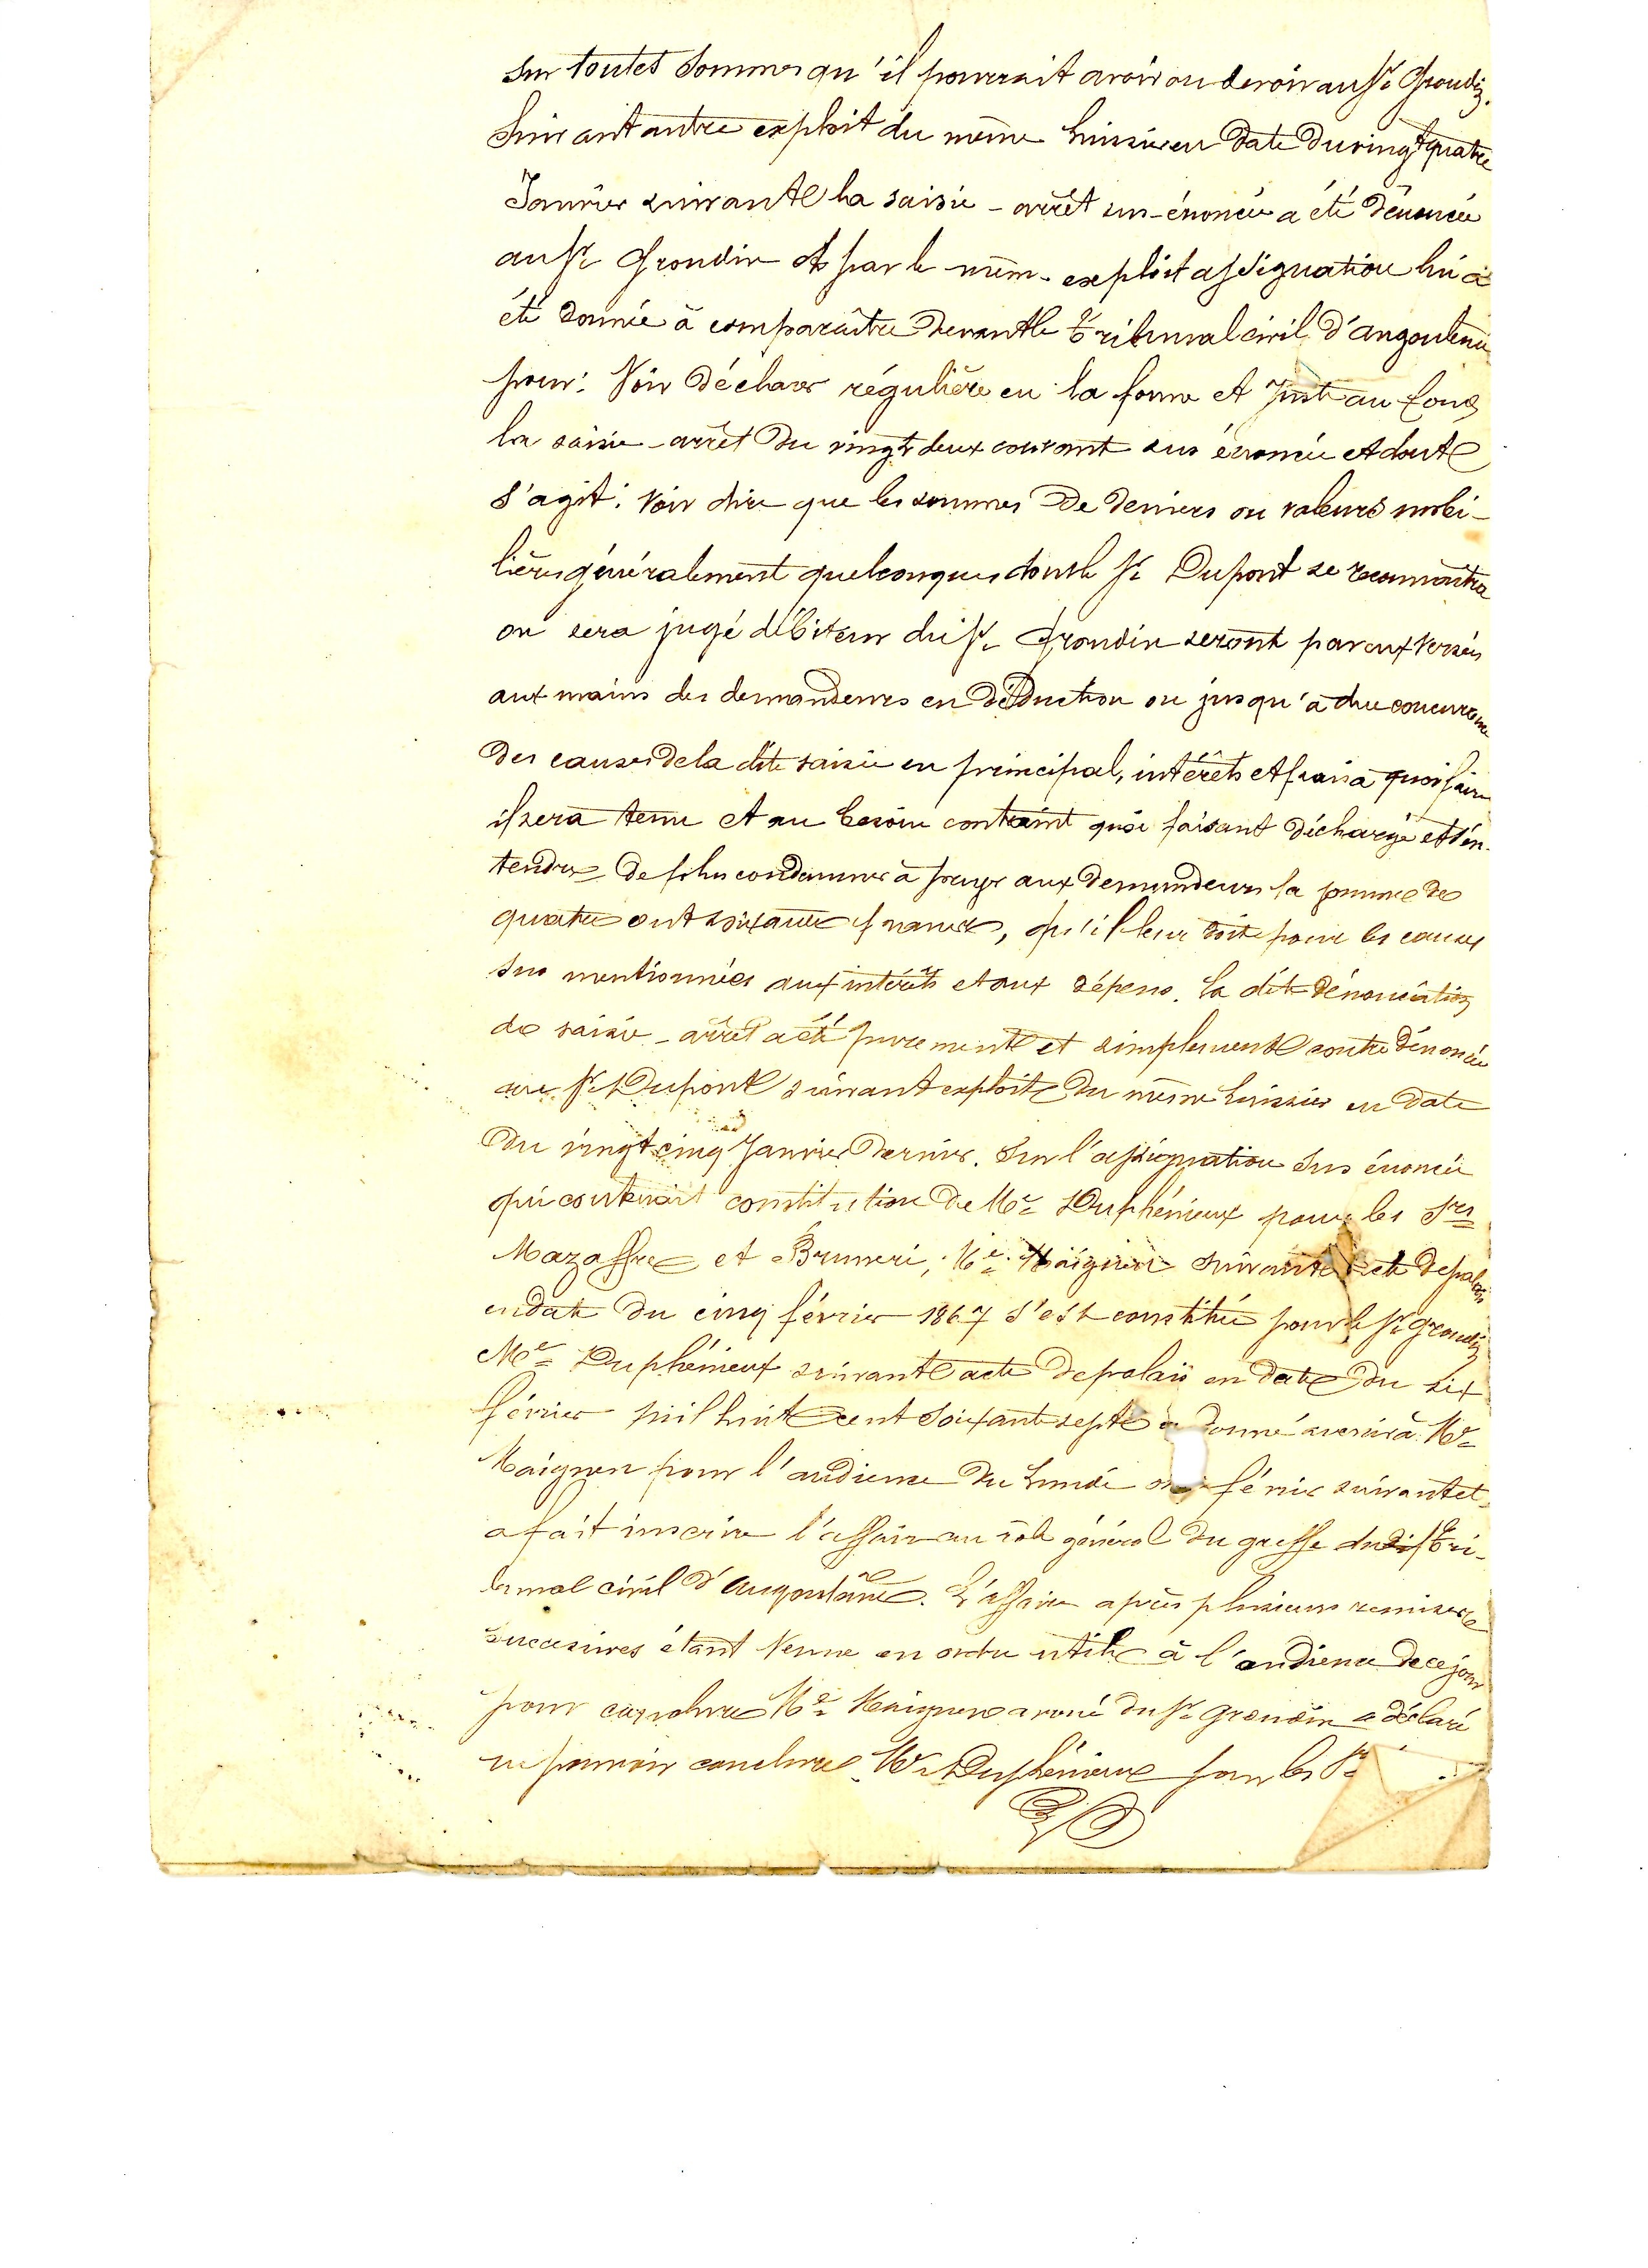 sur toutes sommes qu'il pourrait avoir ou devoir au Sr Grondin.
Suivant autre exploit du même huissier en date du vingt quatre
Janvier suivant la saisie-arrêt sus-énoncée a été dénoncée
au Sr Grondin et par le même exploit assignation lui a
été donnée à comparaître devant le Tribunal civil d'angoulême
pour: Voir déclarer régulière en la forme et juste au fond
la saisie-arrêt du vingt deux courant sus énoncée et dont
s'agit; Voir dire que les sommes de deniers ou valeurs mobi-
lières généralement quelconques dont le Sr Dupont se reconnaîtra
ou sera jugé débiteur du Sr Grondin seront par eux versées
aux mains des demandeurs en déduction ou jusqu'à due concurrence
des causes de la dite saisie en principal, intérêts et frais à quoi faire
il sera tenu et au besoin contraint quoi faisant déchargé et s'en-
tendre de plus condamner à payer aux demandeurs la somme de
quatre cent soixante francs, qu'il leur doit pour les causes
sus mentionnées aux intérêts et aux dépens. La dite dénonciation
de saisie-arrêt a été purement et simplement contre dénoncée
au Sr Dupont suivant exploit du même huissier en date
du vingt cinq Janvier dernier. Sur l'assignation sus énoncée
qui contenait constitution de Me Duphénieux pour les Srs
Mazaffre et Bruneri, Me Maignen suivant acte de palais
en date du cinq février 1867 s'est constitué pour le Sr Grondin
Me Duphénieux suivant acte de palais en date du six
février mil huit cent soixante sept a donné avenir à Me
Maignen pour l'audience du lundi février suivant et
a fait inscrire l'affaire au rôle général du greffe du dit Tri-
bunal civil d'angoulême. L'affaire après plusieurs remises
successives étant venue en ordre utile à l'audience de ce jour
pour conclure Me Maignen avoué du Sr Grondin a déclaré
ne pouvoir conclure. Me Duphénieux pour les Srs